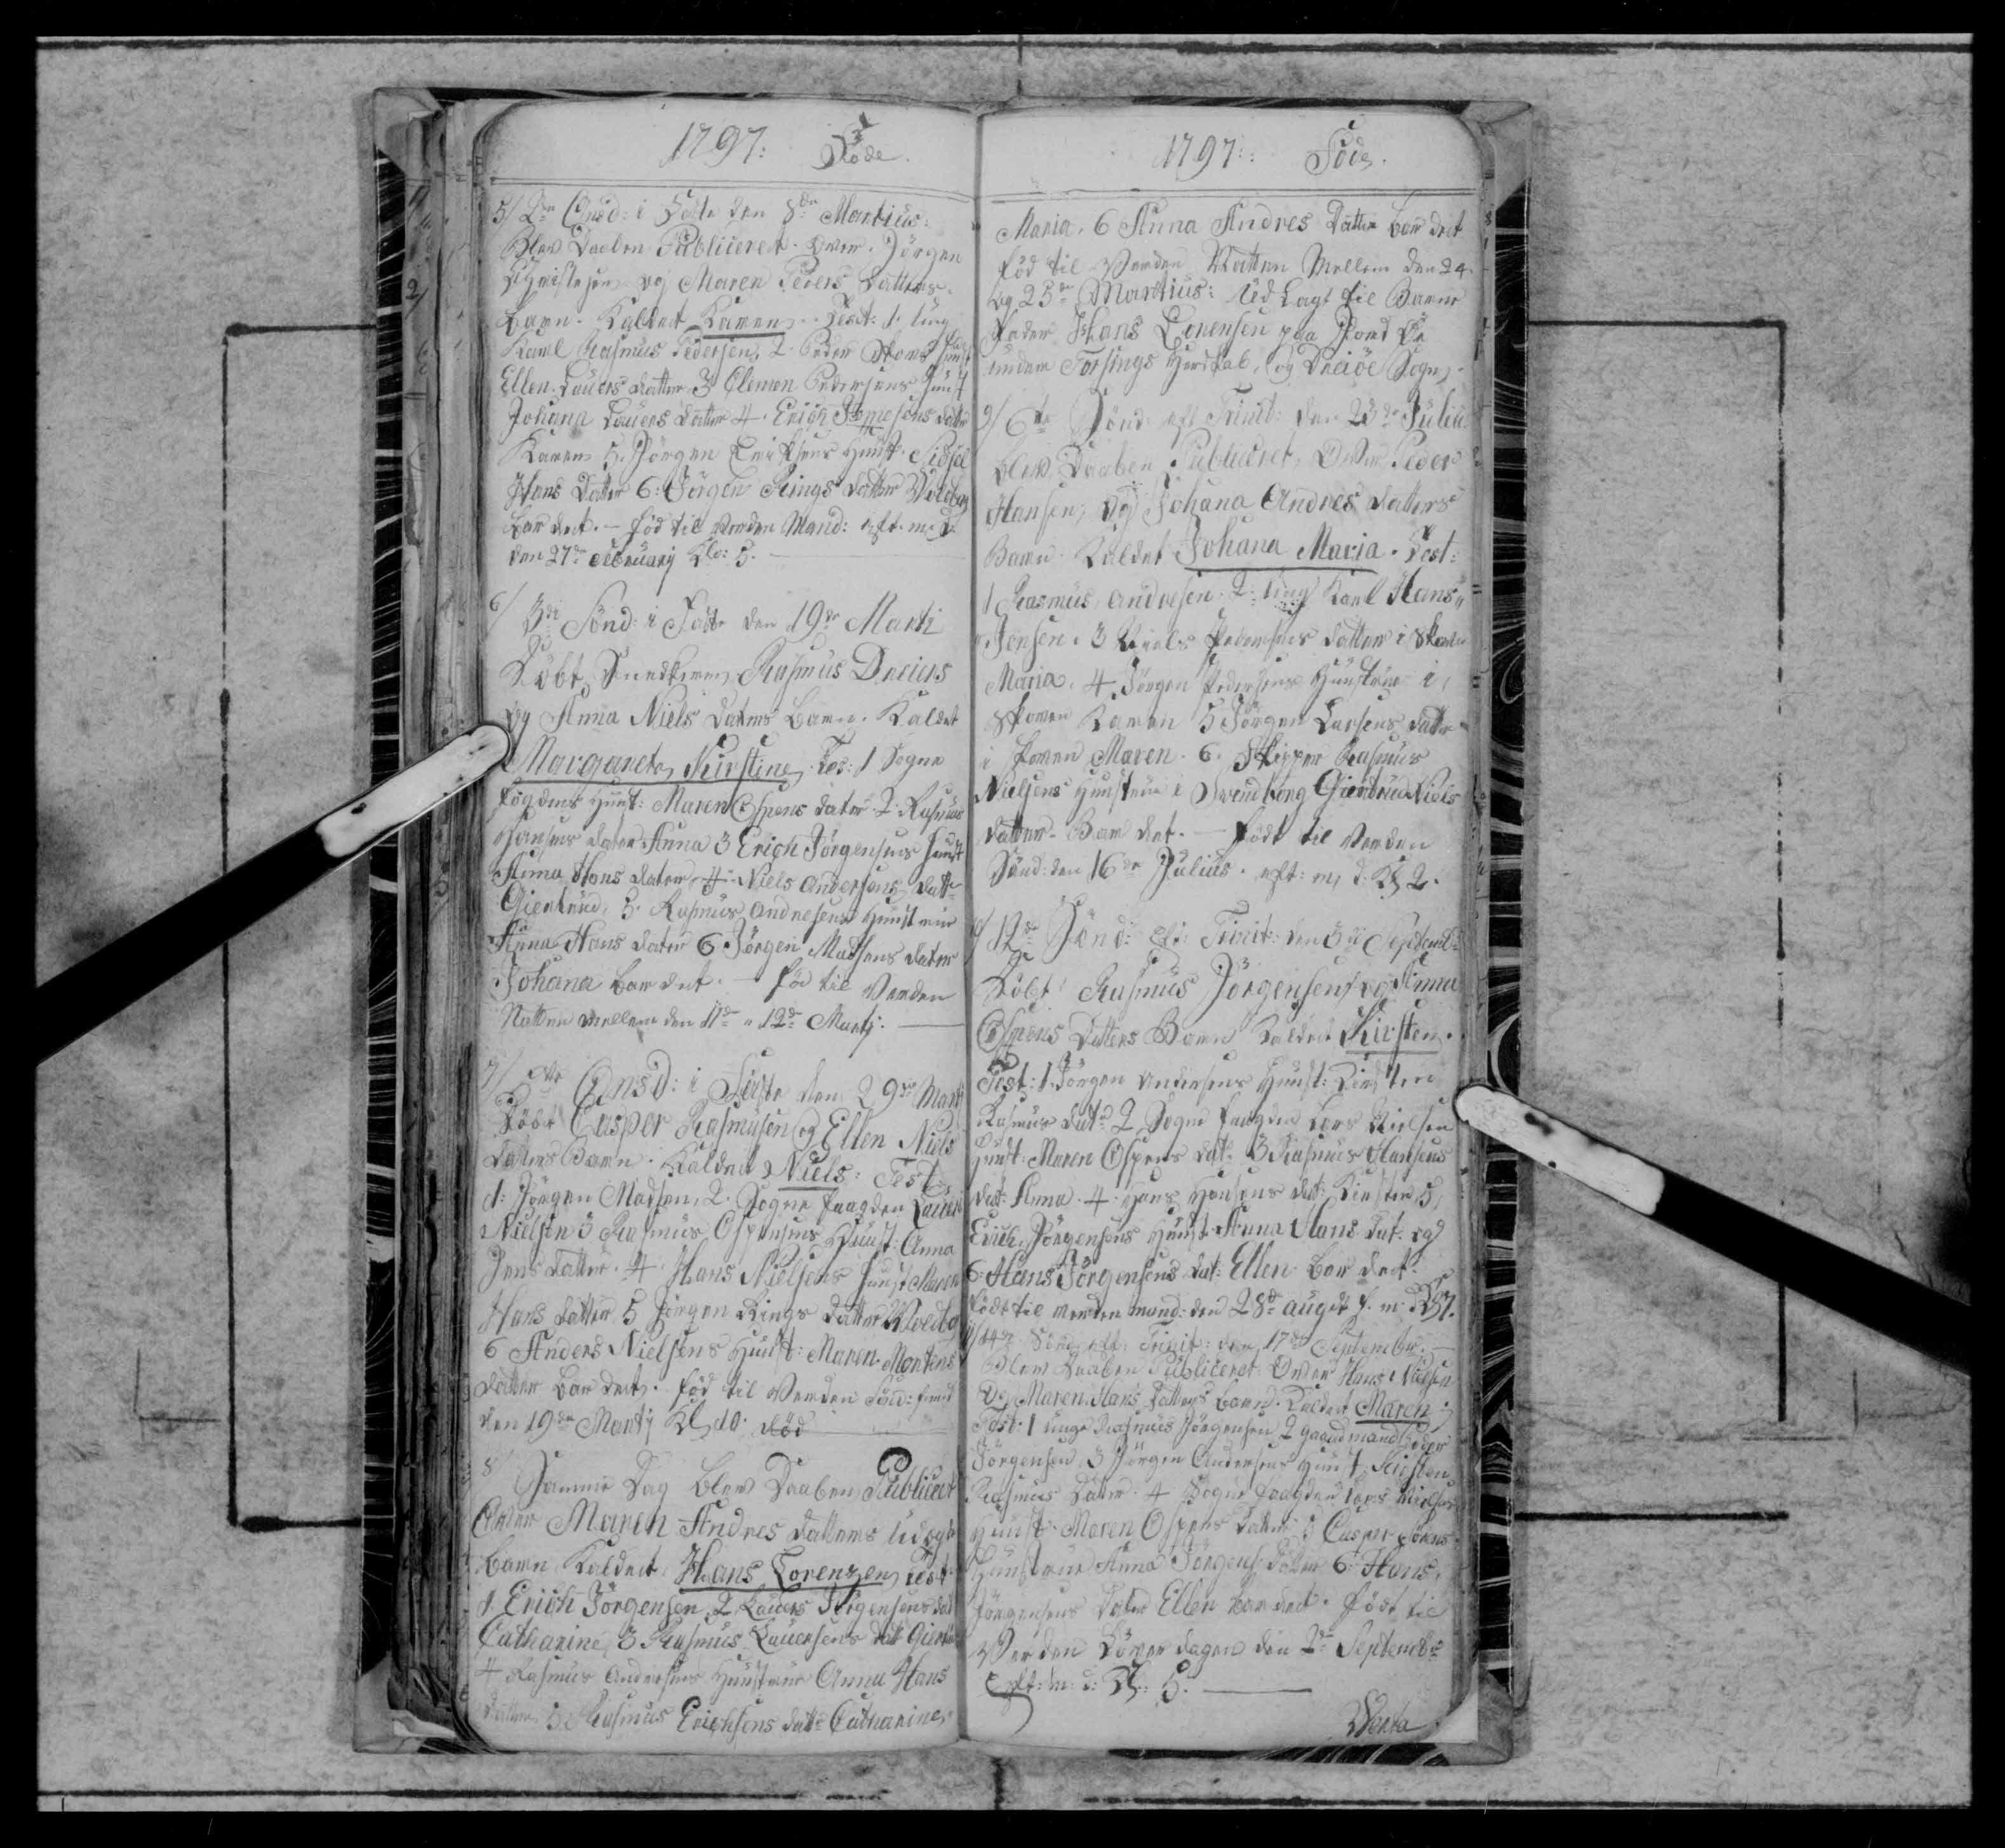 1797: Føde.
5/ 2de Onsd: i Faste den 8de Martius:
Blev Daaben Publiceret over Jörgen
Christensen og Maren Peders Datters
barn Kaldet Karen Test: 1 ung
Karl Rasmus Pedersen, 2 Peder
Ellen Lauers Datter 3 Clemen Pedersens Hust
Johana Lauers Datter 4. Erich datter
Karen 5. Jörgen Eriksens Hust. Sidsel
Hans Datter 6: Jörgen Rings datter Volborg
bar det. — fød til Verden Mand: eft. m. d.
den 27de Februarij Klo: 5.
6/ 3de Sönd: i Faste den 19de Marti
Döbt Snedkeren Rasmus Dreiers
og Anna Niels Daters barn. Kaldet
Margareta Kirstine Tes: 1 Sogne
fogdens Hust: Maren Espens dater 2 Rasmus
Hansens dater Anna 3 Erich Jörgensens Hust
Anna Hans dater 4 Niels Andersens datter
Giertrud, 5. Rasmus Andresens Hustrue
Anna Hans dater 6 Jörgen Madsens dater
Johana bar det. — fød til Verden
Natten mellem den 11de " 12de Martj. —
7/ Onsd: i Faste den 29de Marti
Döbt Casper Rasmusen og Ellen Niels
daters Barn. Kaldet Niels: Test
1: Jörgen Madsen, 2. Sogne faagden Lauers
Nielsen 3 Rasmus Espensens Hust: Anna
Jens datter. 4. Hans Nielsens Hust Maren
Hans datter 5 Jörgen Rings datter Volborg
6 Anders Nielsens Hust: Maren Mortens
datter bar det. fød til Verden Sönd: form
den 19de Martij Kl 10. död
8 Samme Dag blev Daaben Publicert
Over Maren Andres datters Udægte
barn Kaldet Hans Lorenzen Test
1 Erich Jörgensen 2 Lauers Jörgensens dat
Catharine, 3 Rasmus Lauersens dat Giertrud
4 Rasmus Andersens Hustrue Anna Hans
datter, 5. Rasmus Erichsens datr Catharine
1797: Föde.
Maria. 6 Anna Andres Datter bar det
fød til Verden Natten Mellem den 24.
og 25de Martius: Udlagt til Barne
fader Hans Lorensen paa
under Taasings Herskab, og Dreiöe Sogn.
9/ 6te Sönd: eft Trinit: den 23de Julii
blev Daaben Publiceret, Over Peder
Hansen, og Johana Andres Datters
Barn Kaldet Johana Maria. Test:
1 Rasmus Andresen. 2: Ung Karl Hans
Jensen. 3 Niels Pedersens datter i Skoven
Maria. 4 Jörgen Pedersens Hustrue i
Skoven Karen 5 Jörgen Larsens datter
i skoven Maren. 6. Skipper Rasmus
Nielsens Hustrue i Svendborg Giertrud Niels
datter. Bar det. — födt til Verden
Sönd: den 16de Julius. eft: m, d. Kl 2.
12te Sönd: eft: Trinit: den 3de Septemb:
Döbt Rasmus Jörgensen, og Anna
Espens Datters Barn Kaldet Kirsten.
Test: 1. Jörgen Andersens Hust: Kirsten
Rasmus datr 2 Sogne faagden Lars Nielsen
Hust: Maren Espens datr. 3 Rasmus Hansens
dat: Anna. 4. Hans Hansens dat: Kirsten 5,
Erich Jörgensens Hust Anna Hans dat: og
6. Hans Jörgensens dat: Ellen bar det.
födt til verden mand: den 28de augst f. m. Kl 7.
14de Sönd: eft: Trinit: den 17de September.
blev Daaben Publiceret Over Hans Nielsen
Og Maren Hans datters barn. Kaldet Maren
Test: 1 unge Rasmus Jörgensen 2 gaardmand Peder
Jörgensen 3 Jörgen Andersens Hust. Kirsten
Rasmus Dater. 4 Sogne faagden Lars Nielsens
Hust. Maren Espens datter 5 Casper
Hustrue Anna Jörgens datter 6 Hans
Jörgensens dater Ellen bar det. födt til
Verden Löver dagen den 2de Septemb:
Eft: m: d: Kl: 5. —